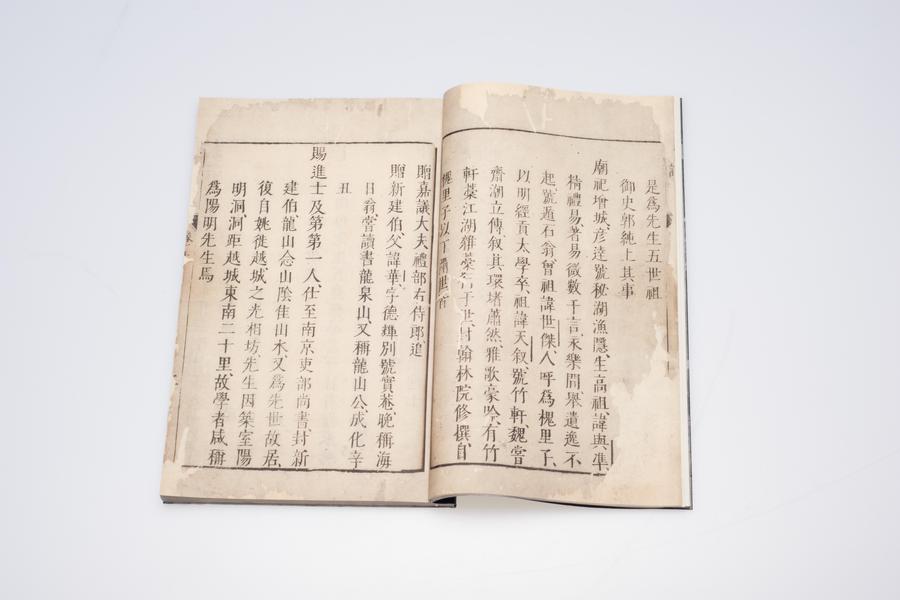 是為先生五世祖
御史郭純上其事
廟祀增城、彥達號秘湖漁隱、生高祖、諱與準、
精禮易、著易微數千言、永樂間舉遺逸不
起、號遁石翁、曾祖諱世傑、人呼為槐里子、
以明經貢太學卒、祖諱天敘、號竹軒、魏嘗
齋瀚立傳、叙其環堵蕭然、雅歌豪吟、有竹
軒藁、江湖雜藁行于世、封翰林院修撰、自
槐里子以下
贈嘉議大夫、禮部右侍郎、追
贈新建伯、父諱華、字德輝、別號實菴、晚稱海
日翁、嘗讀書龍泉山、又稱龍山公、成化辛
丑
賜進士及第第一人、仕至南京吏部尚書、封新
建伯、龍山公念山陰佳山水、又為先世故居、
復自姚徙越城之光相坊、先生因築室陽
明洞、洞距越城東南二十里、故學者咸稱
為陽明先生焉